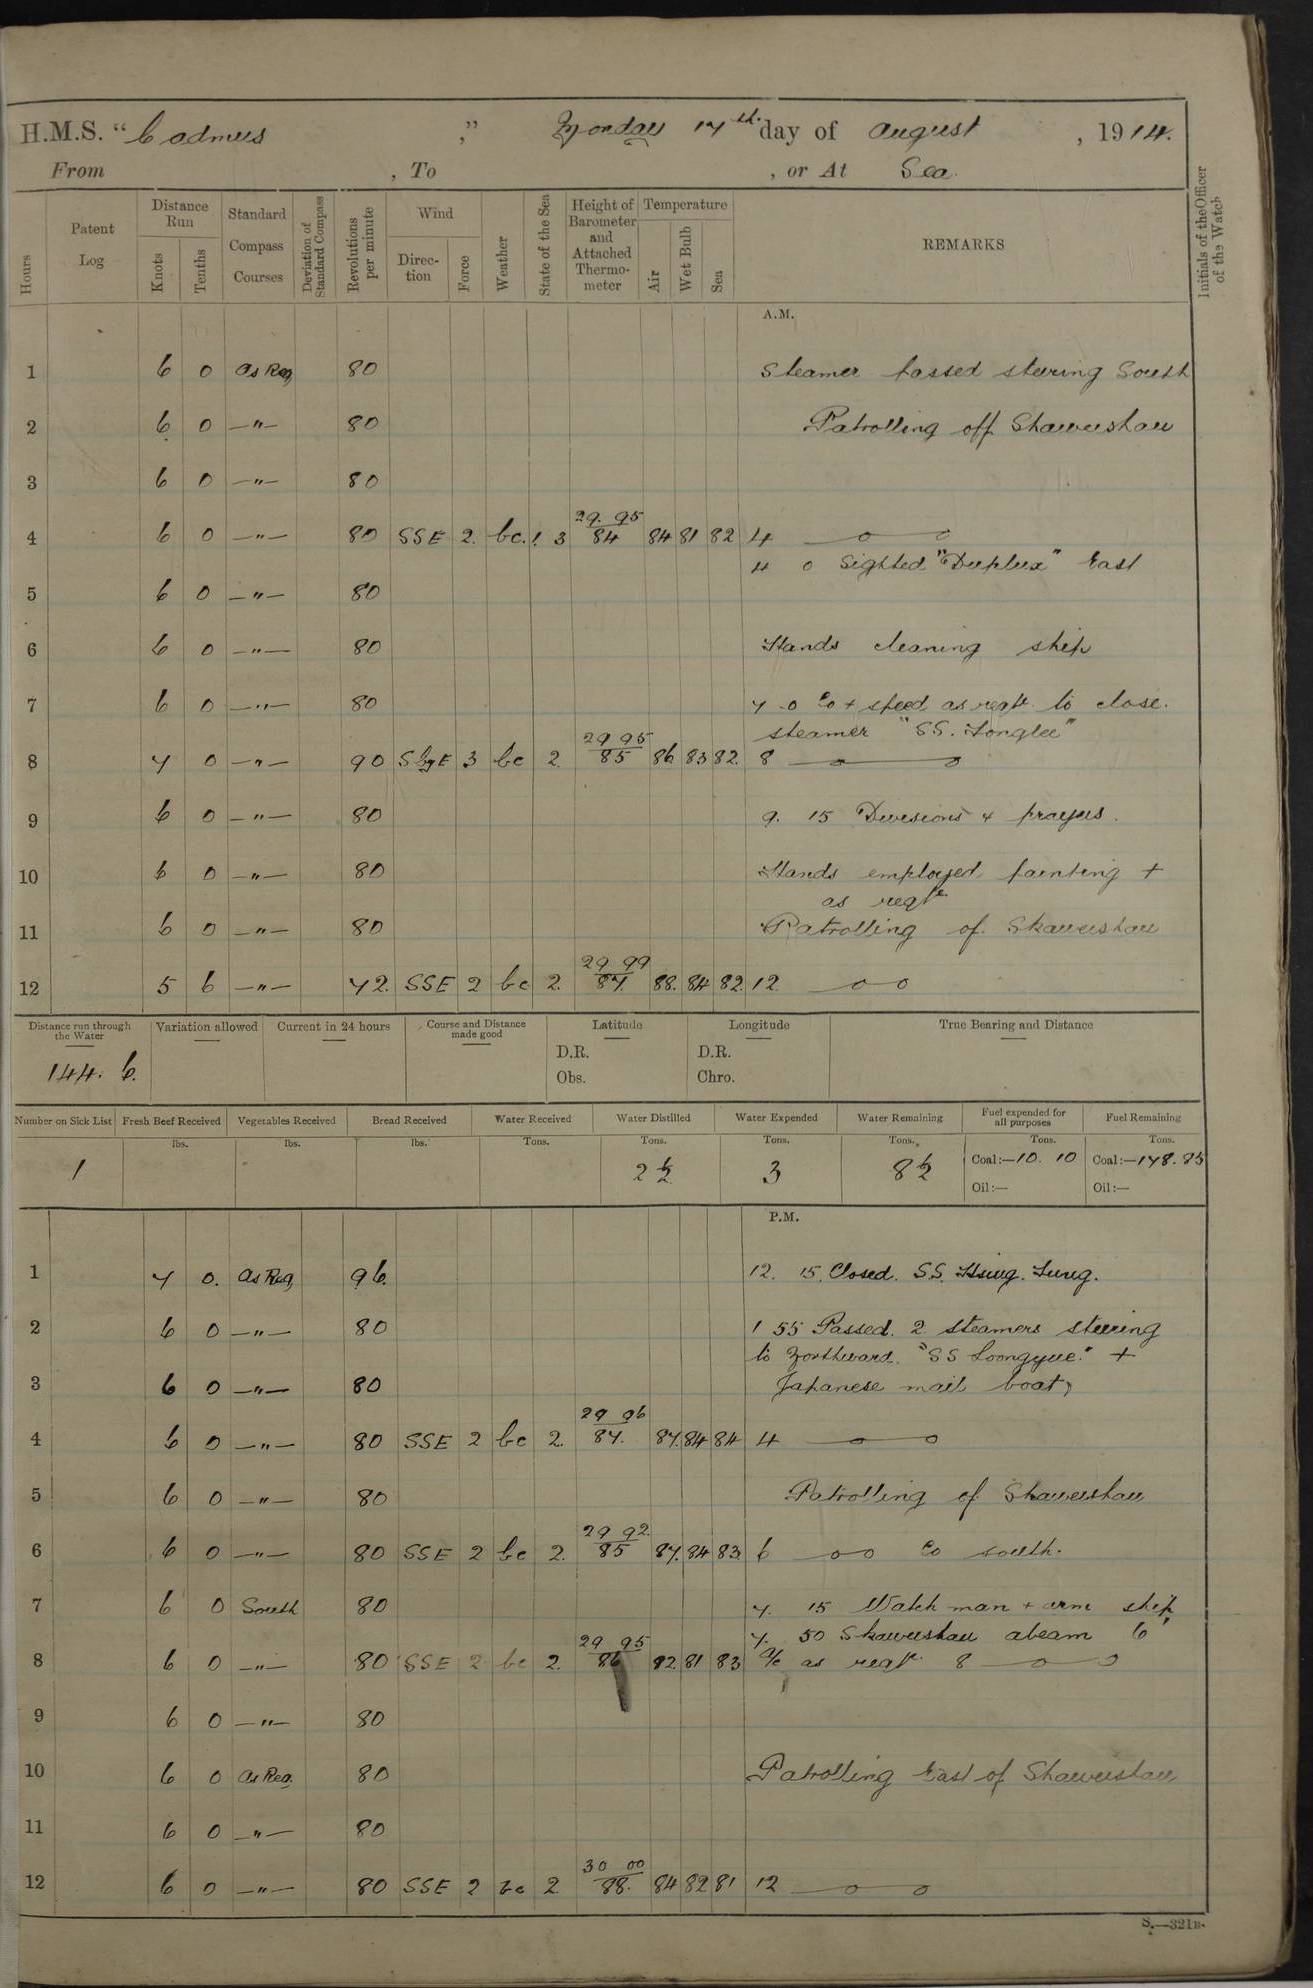 H.M.S. "Cadmus," Monday 17th day of August, 1914.
From , To , or At Sea.
Hours Patent Log Distance Run Knots Tenths Standard Compass Courses Deviation of Standard Compass Revolutions per minute Wind Direction Force Weather State of the Sea Height of Barometer and Attached Thermometer Temperature Air Wet Bulb Sea REMARKS Initials of the Officer of the Watch
A.M.
1 6 0 As Req 80 Steamer passed steering South
2 6 0 —"— 80 Patrolling off Shaweishan
3 6 0 —"— 80
4 6 0 —"— 80 SSE 2. bc. 3 29.95 84 84 81 82 4 —o—o
4 0 Sighted "Dupleix" East
5 6 0 —"— 80
6 6 0 —"— 80 Hands cleaning ship
7 6 0 —"— 80 7 0 Co + speed as reqte to close.
steamer "SS. Tonglee"
8 7 0 —"— 90 SbyE 3 bc 2. 29 95 85 86 83 82. 8 —o—o
9 6 0 —"— 80 9. 15 Divisions + prayers.
10 6 0 —"— 80 Hands employed painting +
as reqte
11 6 0 —"— 80 Patrolling of Shaweishan
12 5 6 —"— 72. SSE 2 bc 2. 29 99 87. 88. 84 82. 12 —o o
Distance run through the Water Variation allowed Current in 24 hours Course and Distance made good Latitude Longitude True Bearing and Distance
D.R. D.R.
144. 6. Obs. Chro.
Number on Sick List Fresh Beef Received Vegetables Received Bread Received Water Received Water Distilled Water Expended Water Remaining Fuel expended for all purposes Fuel Remaining
lbs. lbs. lbs. Tons. Tons. Tons. Tons. Tons. Tons.
1 2 ½ 3 8 ½ Coal:—10. 10 Coal:—178. 85
Oil:— Oil:—
P.M.
1 7 0. As Req 96. 12. 15. Closed. S.S. Hsing. Fung.
2 6 0 —"— 80 1 55 Passed. 2 steamers steering
to Northward. "SS Loongyue." +
3 6 0 —"— 80 Japanese mail boat,
4 6 0 —"— 80 SSE 2 bc 2. 29 96 87. 87. 84 84 4 —o—o
5 6 0 —"— 80 Patrolling of Shaweishan
6 6 0 —"— 80 SSE 2 bc 2. 29 92. 85 87. 84 83 6 —o o Co south.
7 6 0 South 80 7. 15 Watch man + arm ship
7. 50 Shaweishan abeam 6'
8 6 0 —"— 80 SSE 2 bc 2. 29 95 86 82. 81 83 a/c as reqte 8 —o—o
9 6 0 —"— 80
10 6 0 As Req. 80 Patrolling East of Shaweishan
11 6 0 —"— 80
12 6 0 —"— 80 SSE 2 bc 2 30 00 88. 84 82 81 12 —o—o
S.—321B.